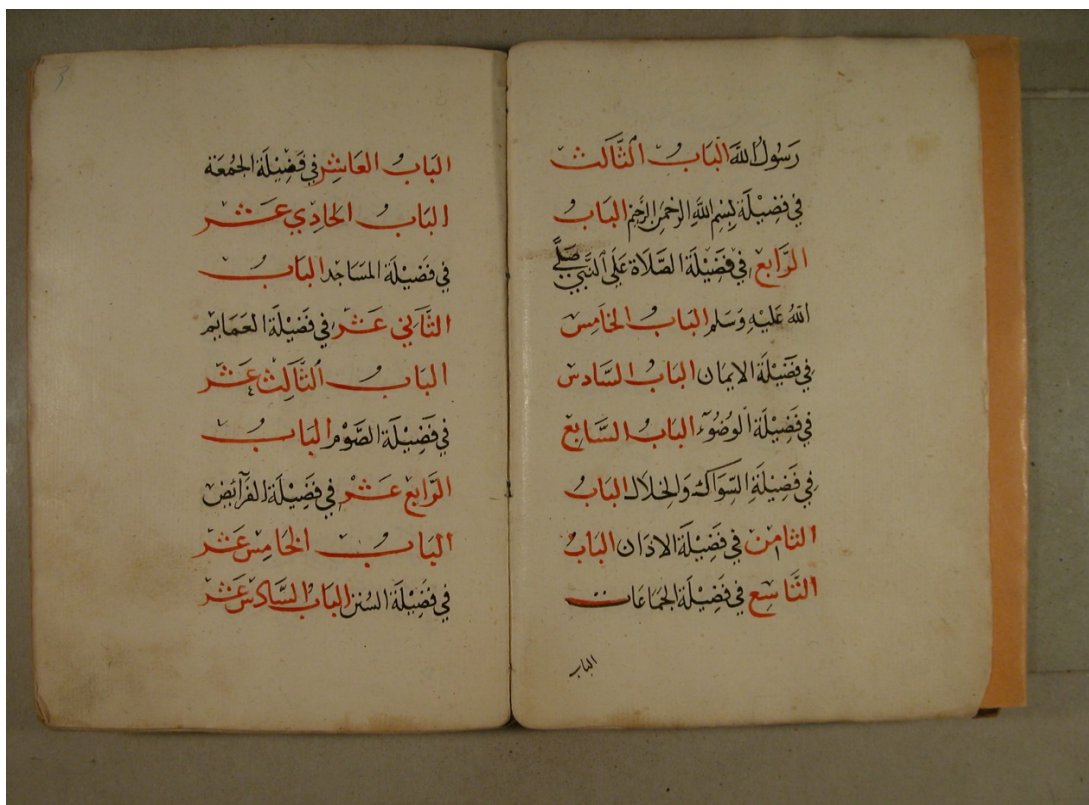 رَسُولُ اللَّه البَابُ الثَّالث
في فضِيْلَة بِسْمِ اللَّهِ الرَّحْمَنِ الرَّحِيْم البَابُ
الرَّابع في فَضِيْلَة الصَّلَاة عَلَى النَّبِيّ صَلَّى
اللهُ عَلَيْهِ وَسَلم البَابُ الخَامِس
في فَضِيْلَة الايمَان البَابُ السَّادس
في فَضِيْلَة الوُضُوْء البَابُ السَّابع
في فَضِيْلَةِ السِّوَاك وَالخلَال البَابُ
الثامن في فَضِيْلَة الاذَان البَابُ
التَّاسِع في فَضِيْلَة الجمَاعَات
الباب
3
البَابُ العَاشِر في فَضِيْلَة الجُمُعَة
البَابُ الحَادِي عَشر
في فَضِيْلَة المسَاجد البَابُ
الثَّانِي عَشر في فَضِيْلَة العَمَايم
البَابُ الثَّالث عَشر
في فَضِيْلَة الصَّوْم البَابُ
الرَّابع عَشر في فَضِيْلَة الفَرَآئض
البَابُ الخَامِس عَشر
في فَضِيْلَة السُنن البَابُ السَّادس عَشر